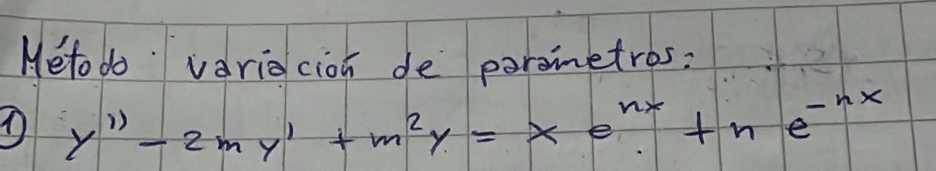 Método variación de parámetros:
① y'' - 2my' + m²y = x e^{nx} + n e^{-nx}